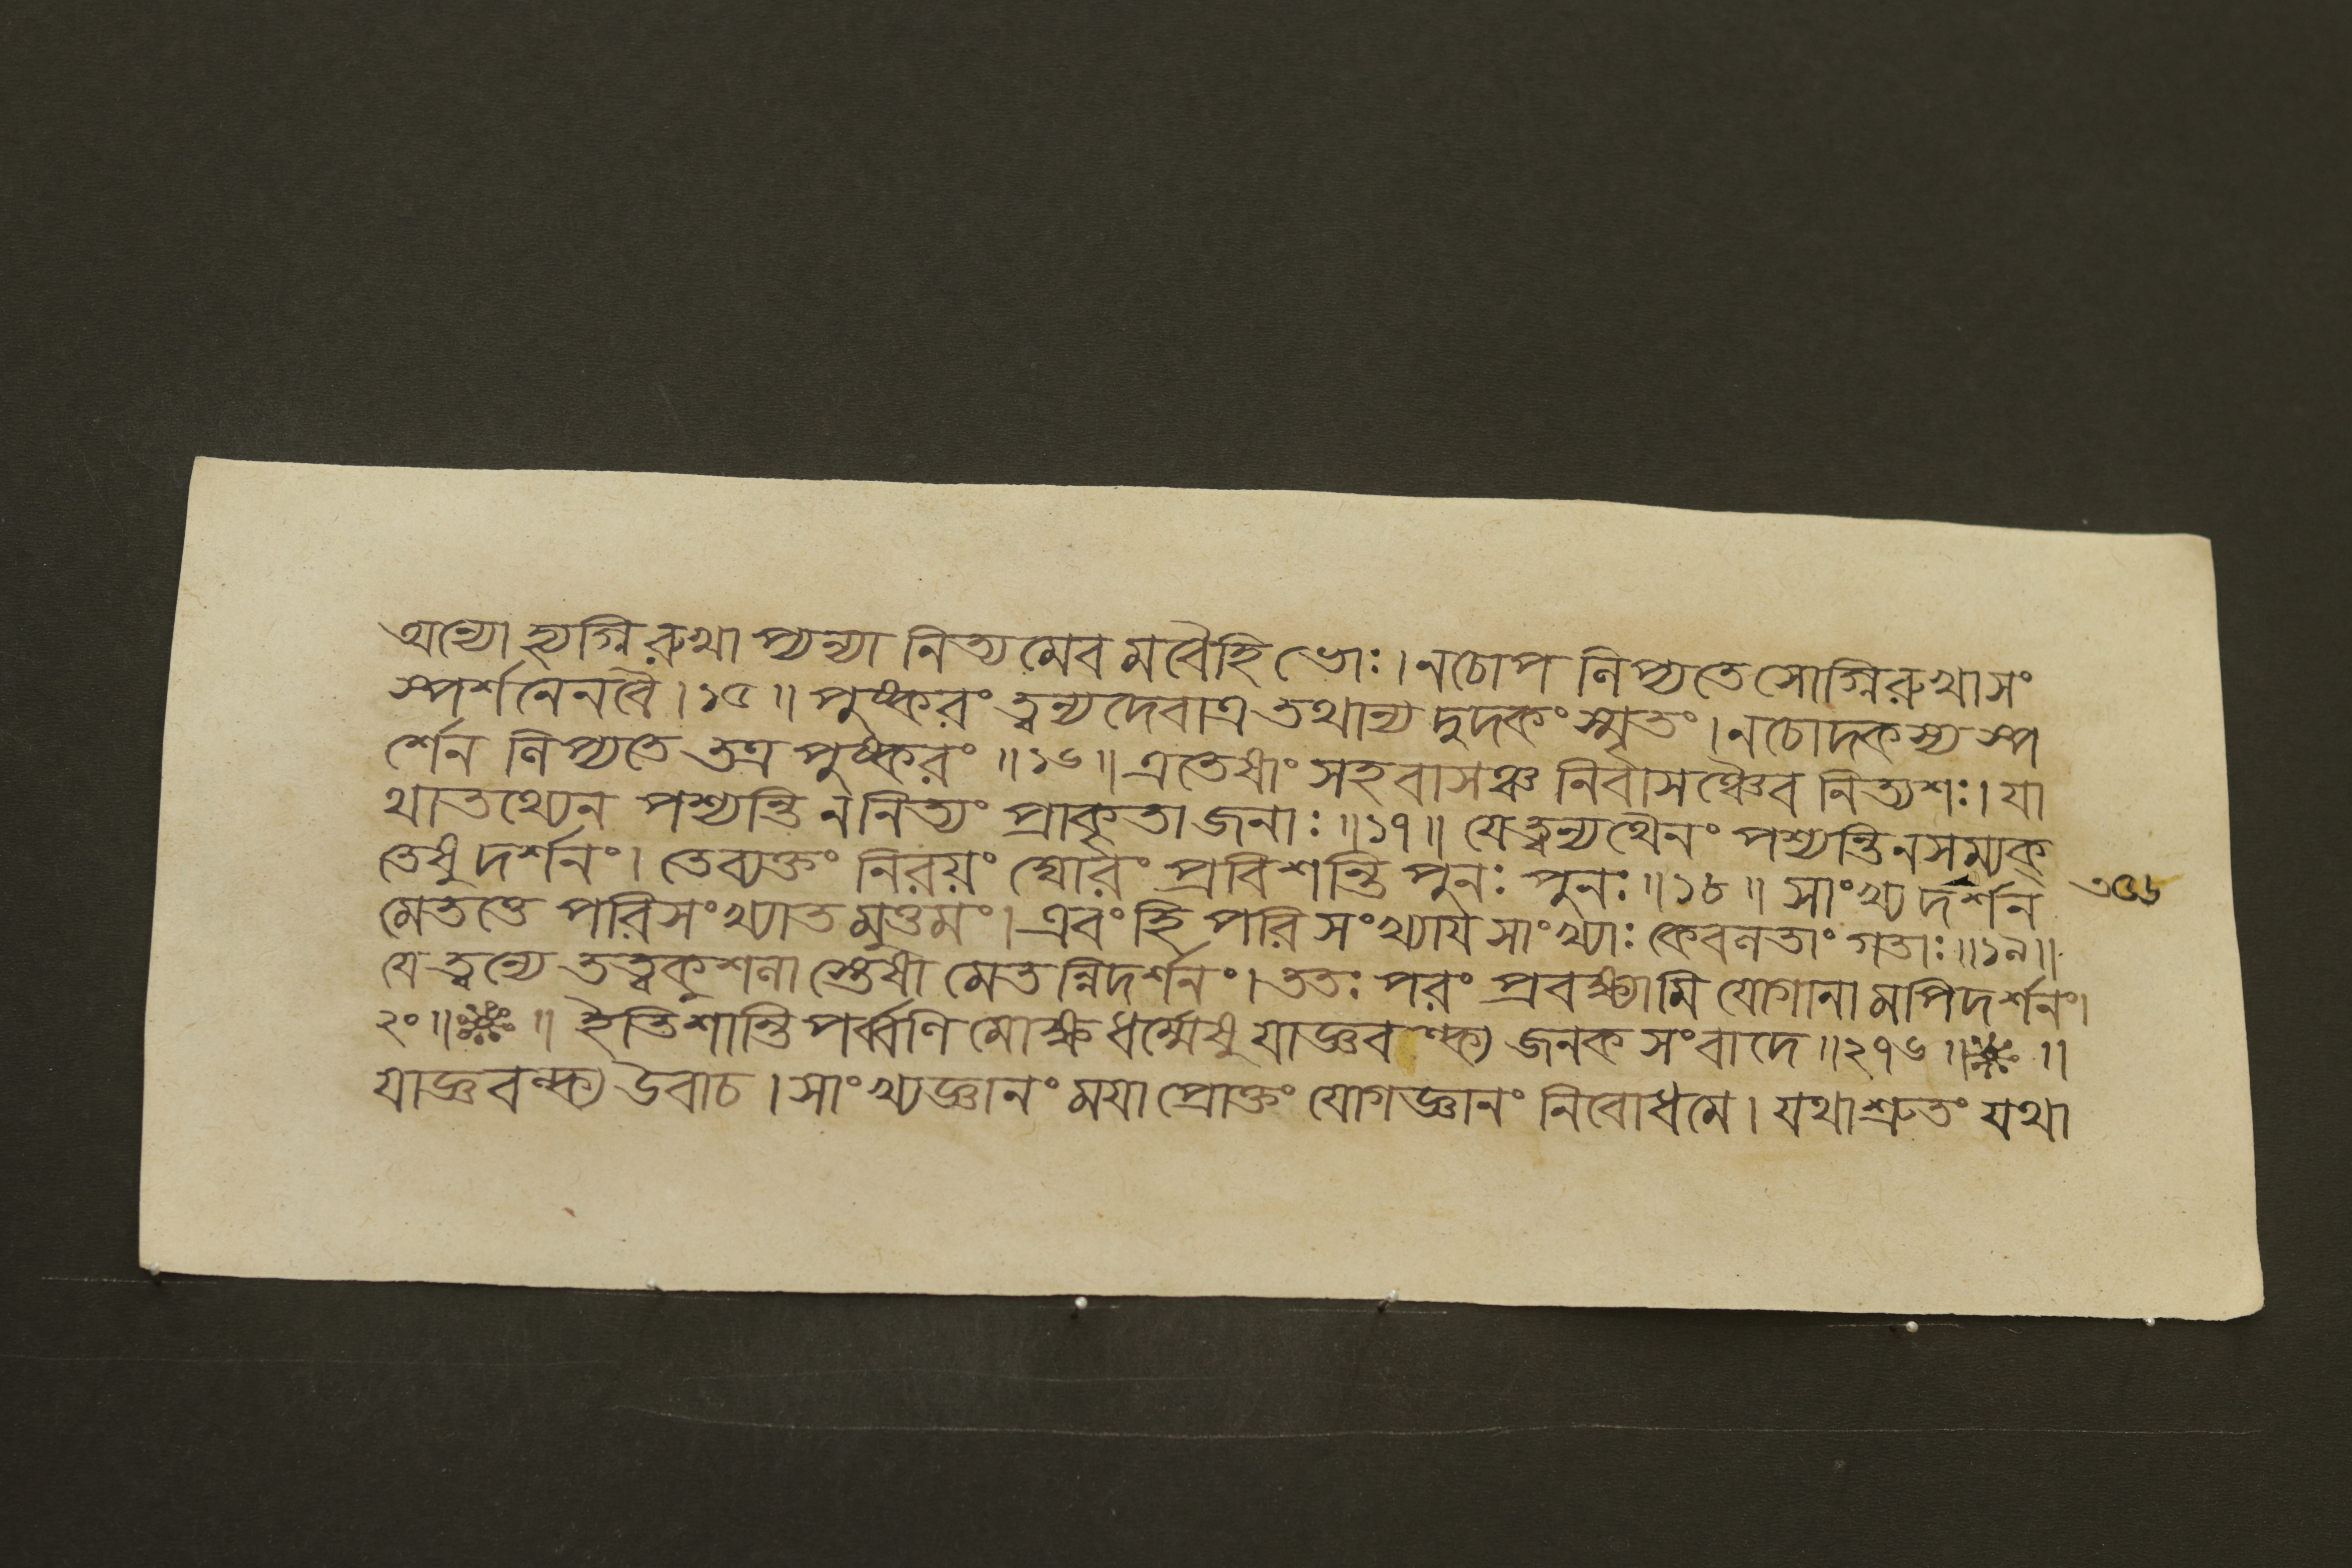 অন্যো হ্যগ্নিরুখা প্যন্যা নিত্যমেব মবৈহি ভোঃ। ন চোপ লিপ্যতে সোগ্নিরুখাসং
স্পর্শনেন বৈ। ১৫॥ পুষ্করং ত্বন্যদেবাত্র তথান্য দুদকং স্মৃতং। ন চোদকস্য স্প
র্শেন লিপ্যতে তত্র পুষ্করং ॥১৬॥ এতেষাং সহবাসঞ্চ নির্বাসঞ্চৈব নিত্যশঃ। যা
থাতথ্যেন পশ্যন্তি ন নিত্যং প্রাকৃতা জনাঃ ॥১৭॥ যে ত্বন্যথৈনং পশ্যন্তি ন সম্যক্
তেষু দর্শনং। তে ব্যক্তং নিরয়ং ঘোরং প্রবিশন্তি পুনঃ পুনঃ ॥১৮॥ সাংখ্য দর্শন
৩৫৬
মেতত্তে পরিসংখ্যাত মুত্তমং। এবং হি পরি সংখ্যায সাংখ্যাঃ কেবলতাং গতাঃ ॥১৯॥
যে ত্বন্যে তত্ত্বকুশলা স্তেষা মেতন্নিদর্শনং। ততঃ পরং প্রবক্ষ্যামি যোগানা মপি দর্শনং।
২০॥ ॥ ইতি শান্তি পর্ব্বণি মোক্ষ ধর্ম্মেষু যাজ্ঞবল্ক্য জনক সংবাদে ॥২৭৬॥ ॥
যাজ্ঞবল্ক্য উবাচ। সাংখ্যজ্ঞানং ময়া প্রোক্তং যোগজ্ঞানং নিবোধ মে। যথাশ্রুতং যথা